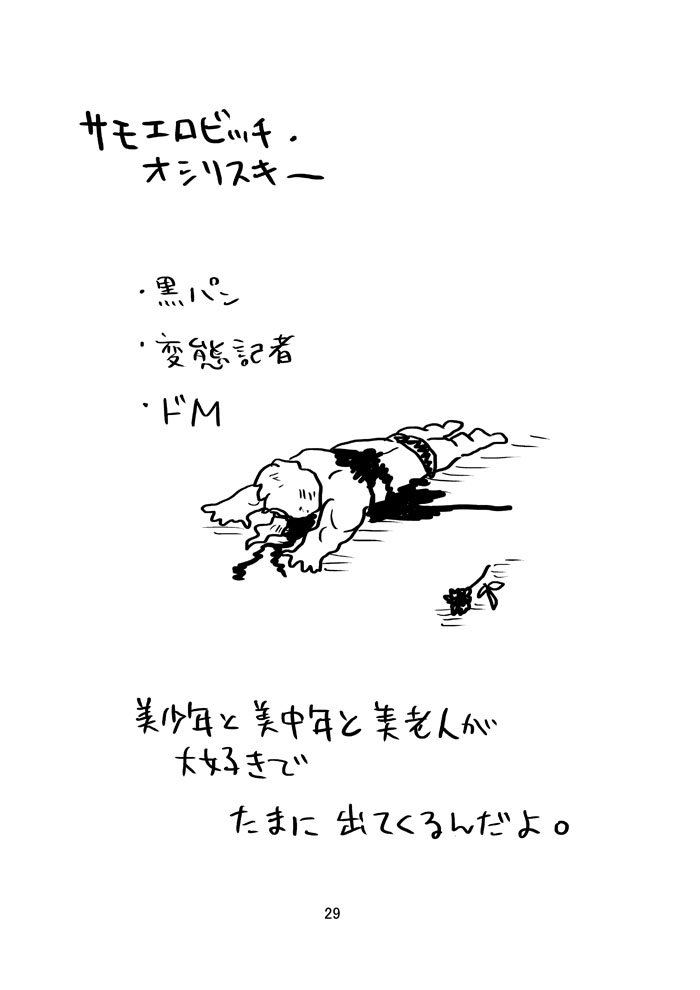 サモエロビッチ・
オシリスキー
・黒パン
・変態記者
・ドM
美少年と美中年と美老人が
大好きで
たまに出てくるんだよ。
29